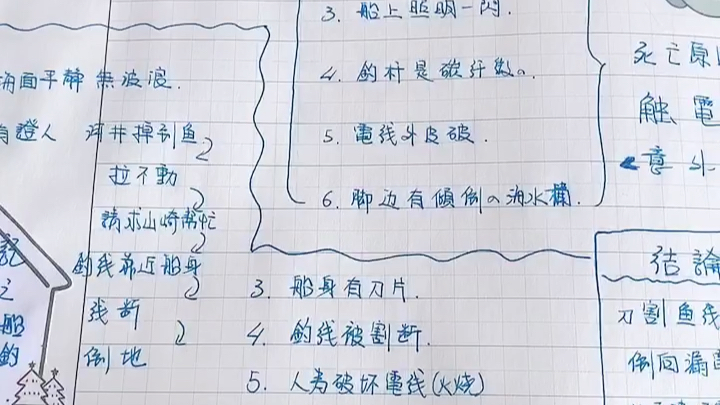 3. 船上照明一閃.
4. 釣杆是碳纤做的.
5. 電线外皮破.
6. 脚边有傾倒の海水桶.
海面平靜 無波浪.
有證人 河井掉到鱼
拉不動
請求山崎幫忙
釣线靠近船身
线断
倒地
死亡原因
触電
意外
3. 船身有刀片.
4. 釣线被割断.
5. 人为破坏電线(火烧)
記
之
船
釣
结論
刀割鱼线
倒向漏電